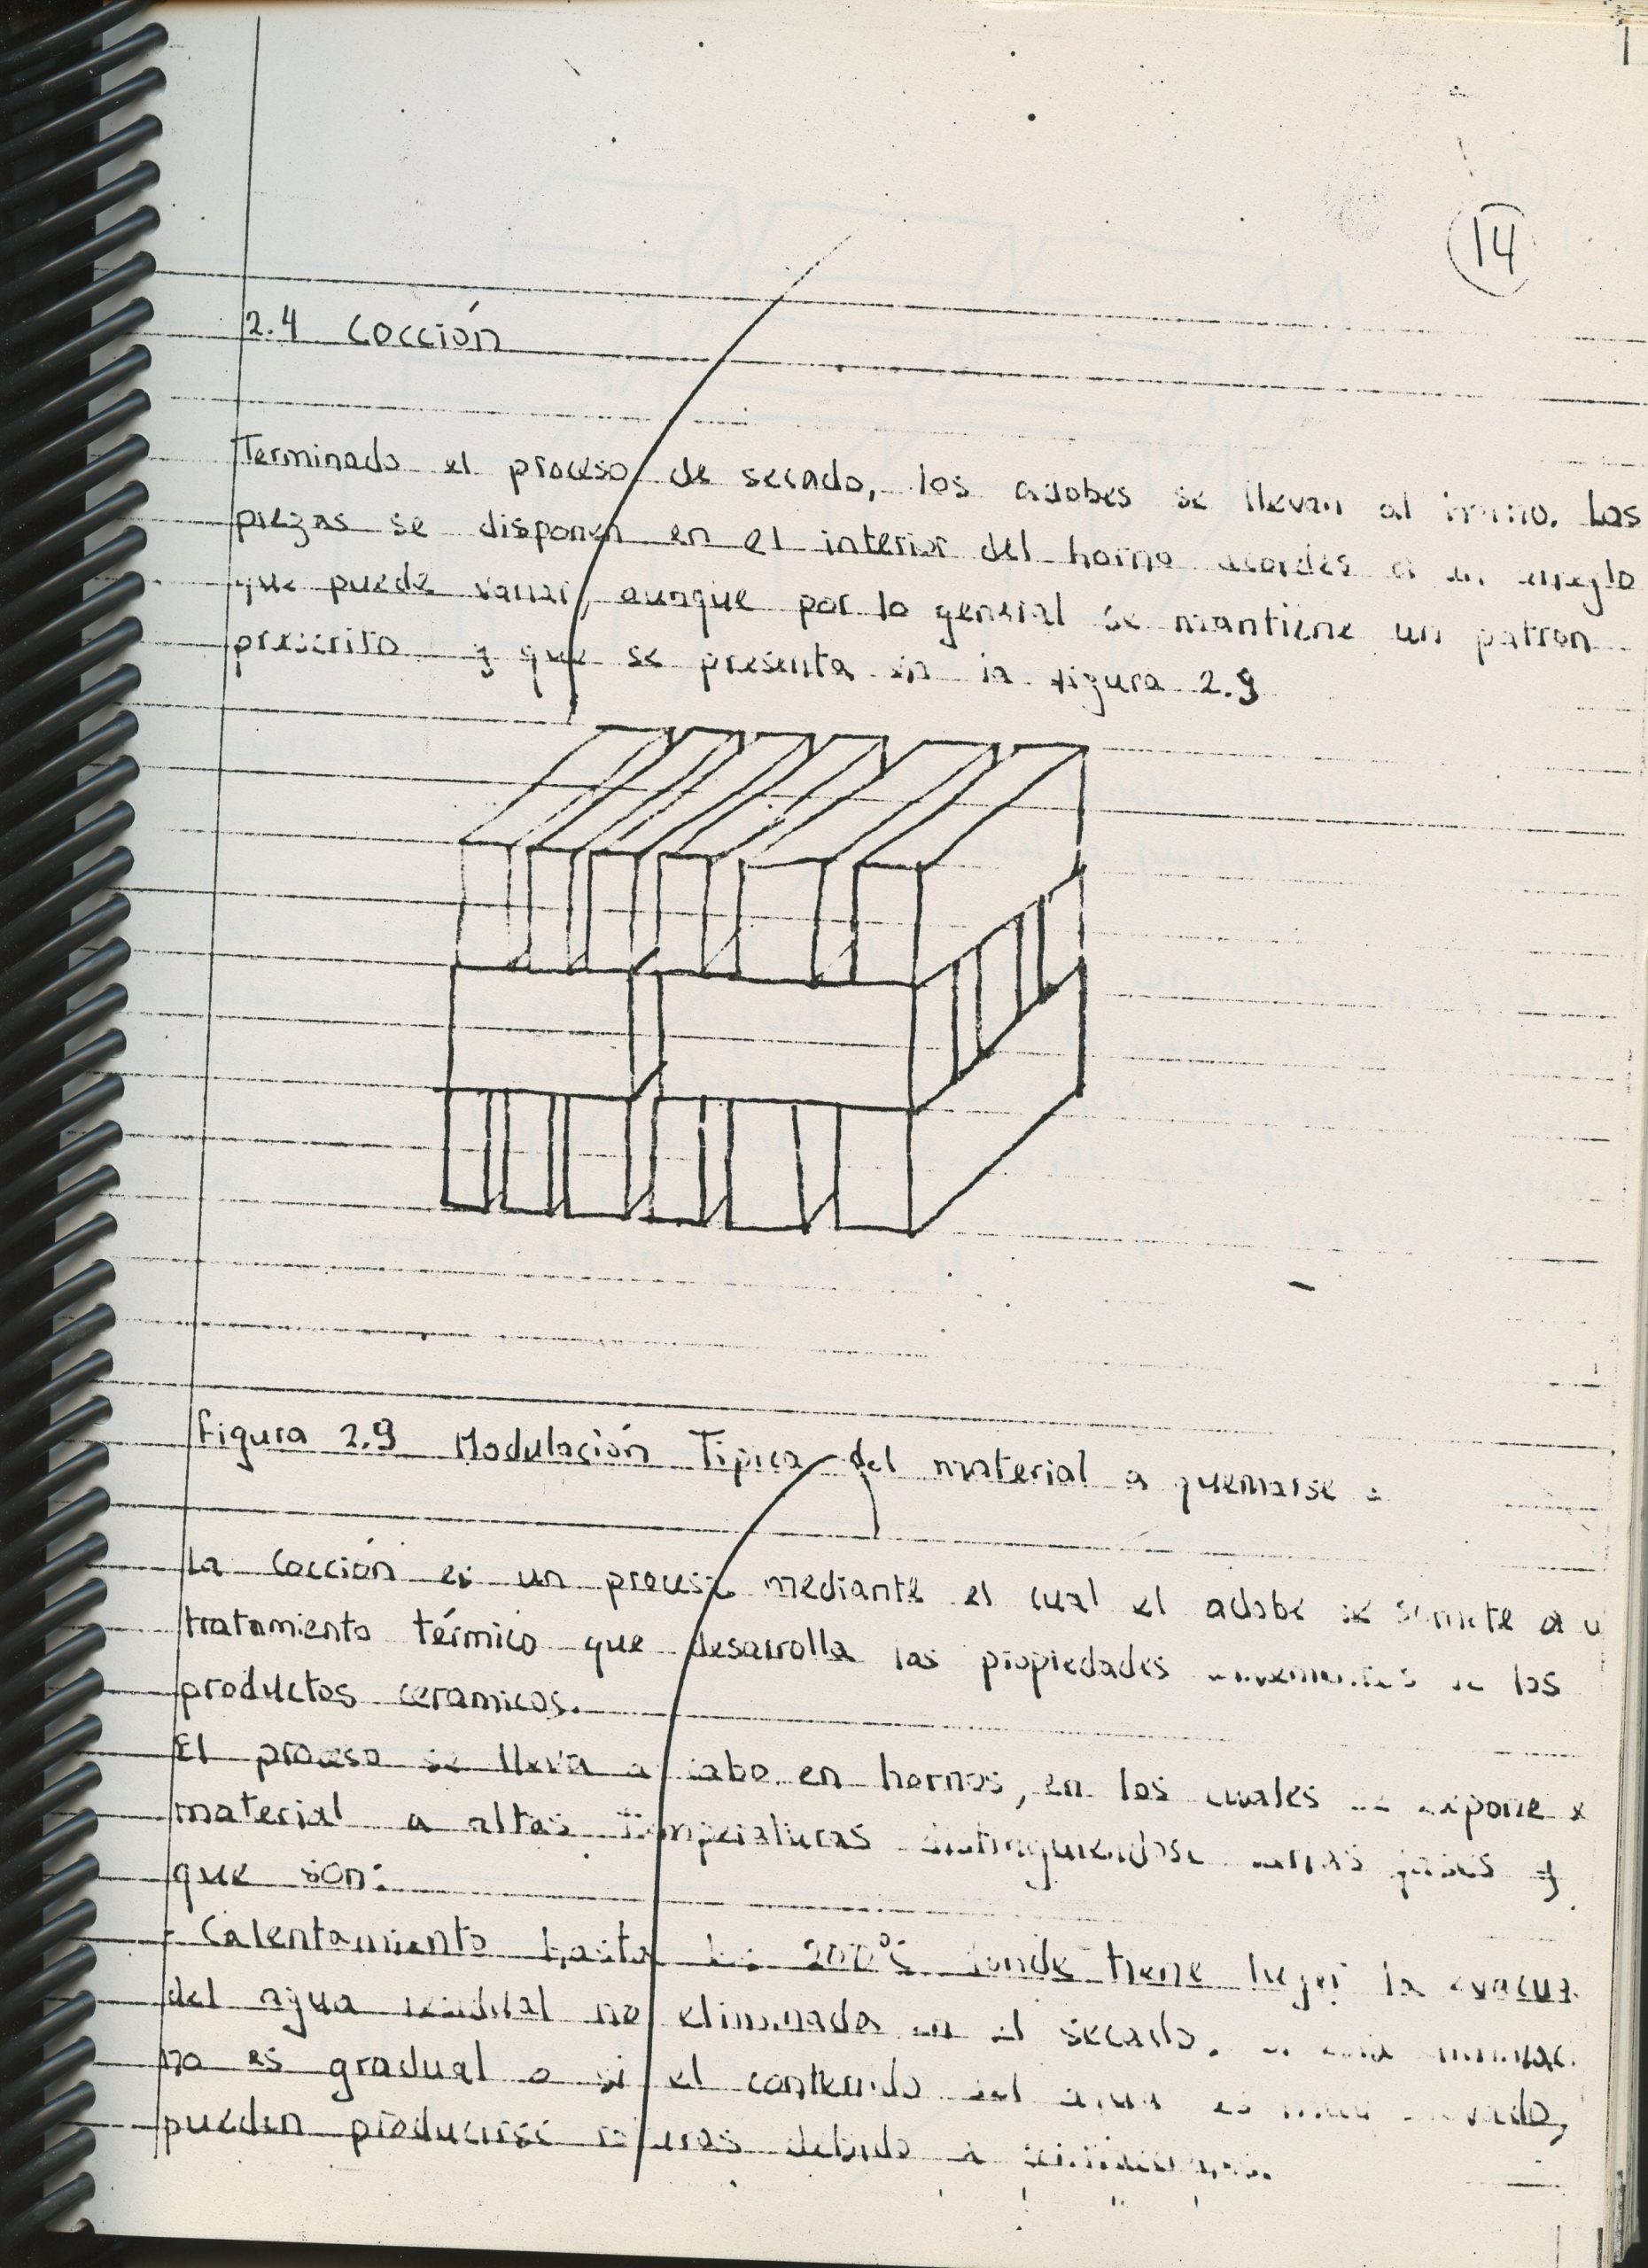 14
2.4 Cocción
Terminado el proceso de secado, los adobes se llevan al horno. Las
piezas se disponen en el interior del horno acordes a un arreglo
que puede variar, aunque por lo general se mantiene un patron
prescrito y que se presenta en la figura 2.9
Figura 2.9 Modulación Tipica del material a quemarse
La cocción es un proceso mediante el cual el adobe se somete a u
tratamiento térmico que desarrolla las propiedades de los
productos ceramicos.
El proceso se lleva a cabo en hornos, en los cuales se expone
material a altas temperaturas distinguiendose varias fases y
que son:
- Calentamiento hasta los 200°C donde tiene lugar la evacua
del agua residual no eliminada en el secado. si esta
no es gradual o si el contenido del agua es muy elevado,
pueden producirse roturas debido a